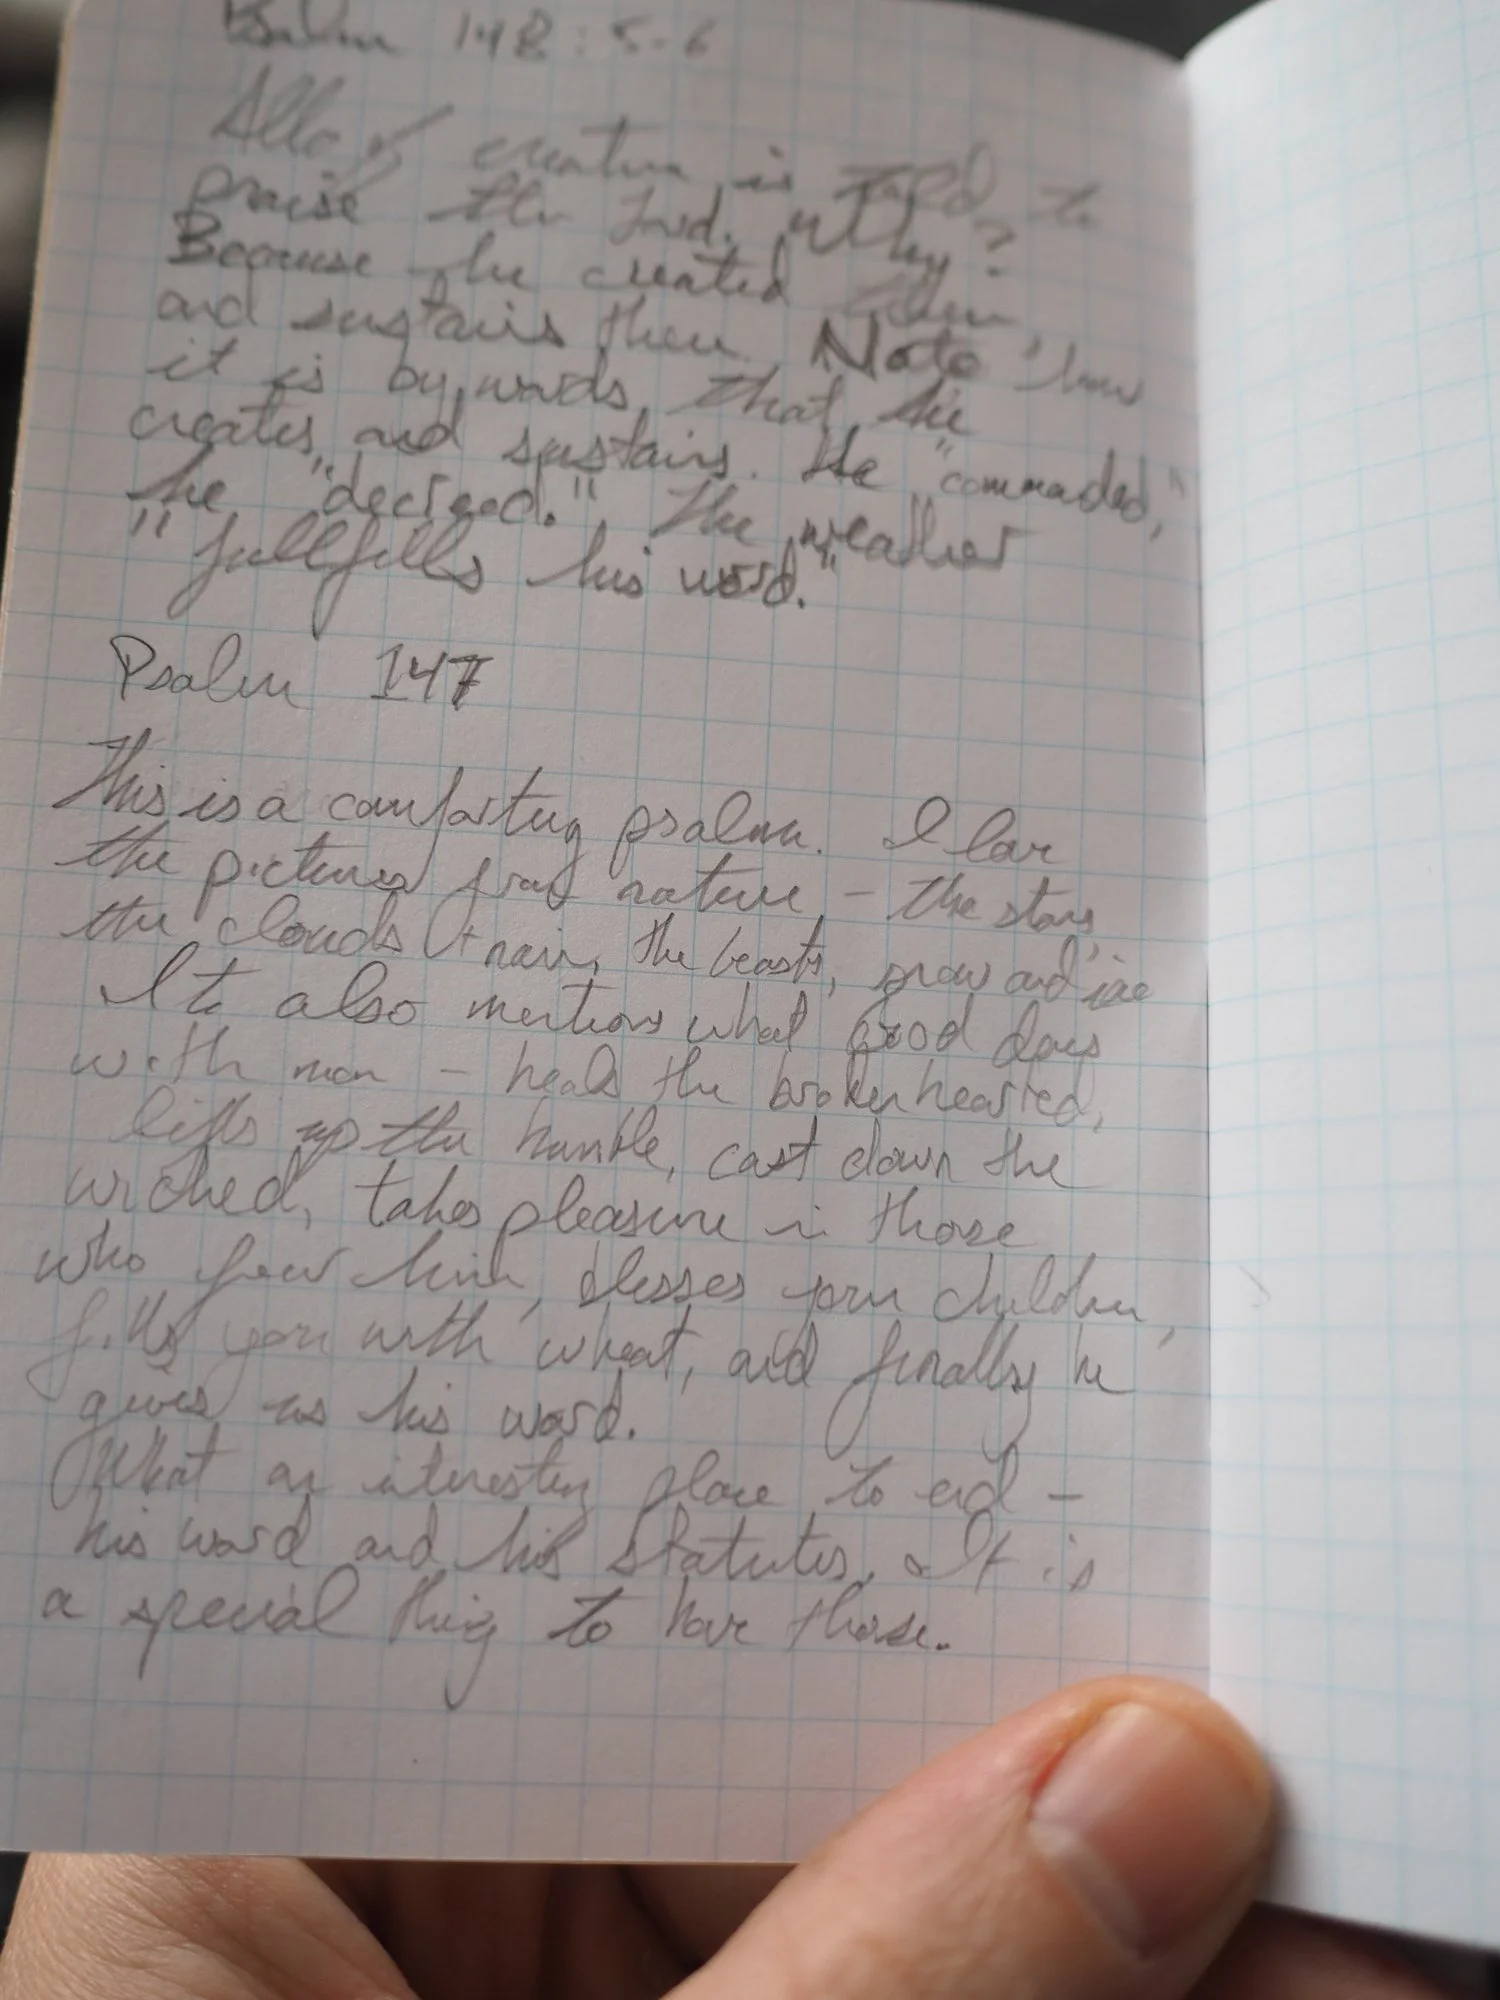 Psalm 148:5-6
All of creation is told to
praise the Lord. Why?
Because he created them
and sustains them. Note how
it is by words that he
creates and sustains. He "commaded,"
he "decreed." The weather
"fullfills his word."
Psalm 147
This is a comforting psalm. I love
the pictures from nature - the stars,
the clouds + rain, the beasts, snow and ice
It also mentions what good does
with man - heals the brokenhearted,
lifts up the humble, cast down the
wicked, takes pleasure in those
who fear him, blesses your children,
fills you with wheat, and finally he
gives us his word.
What an interesting place to end -
his word and his statutes. It is
a special thing to have those.